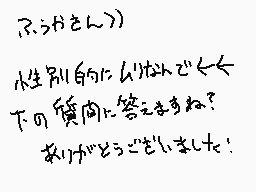 ふうかさん))
性別的にムリなんで←←
下の質問に答えますね?
ありがとうございました!